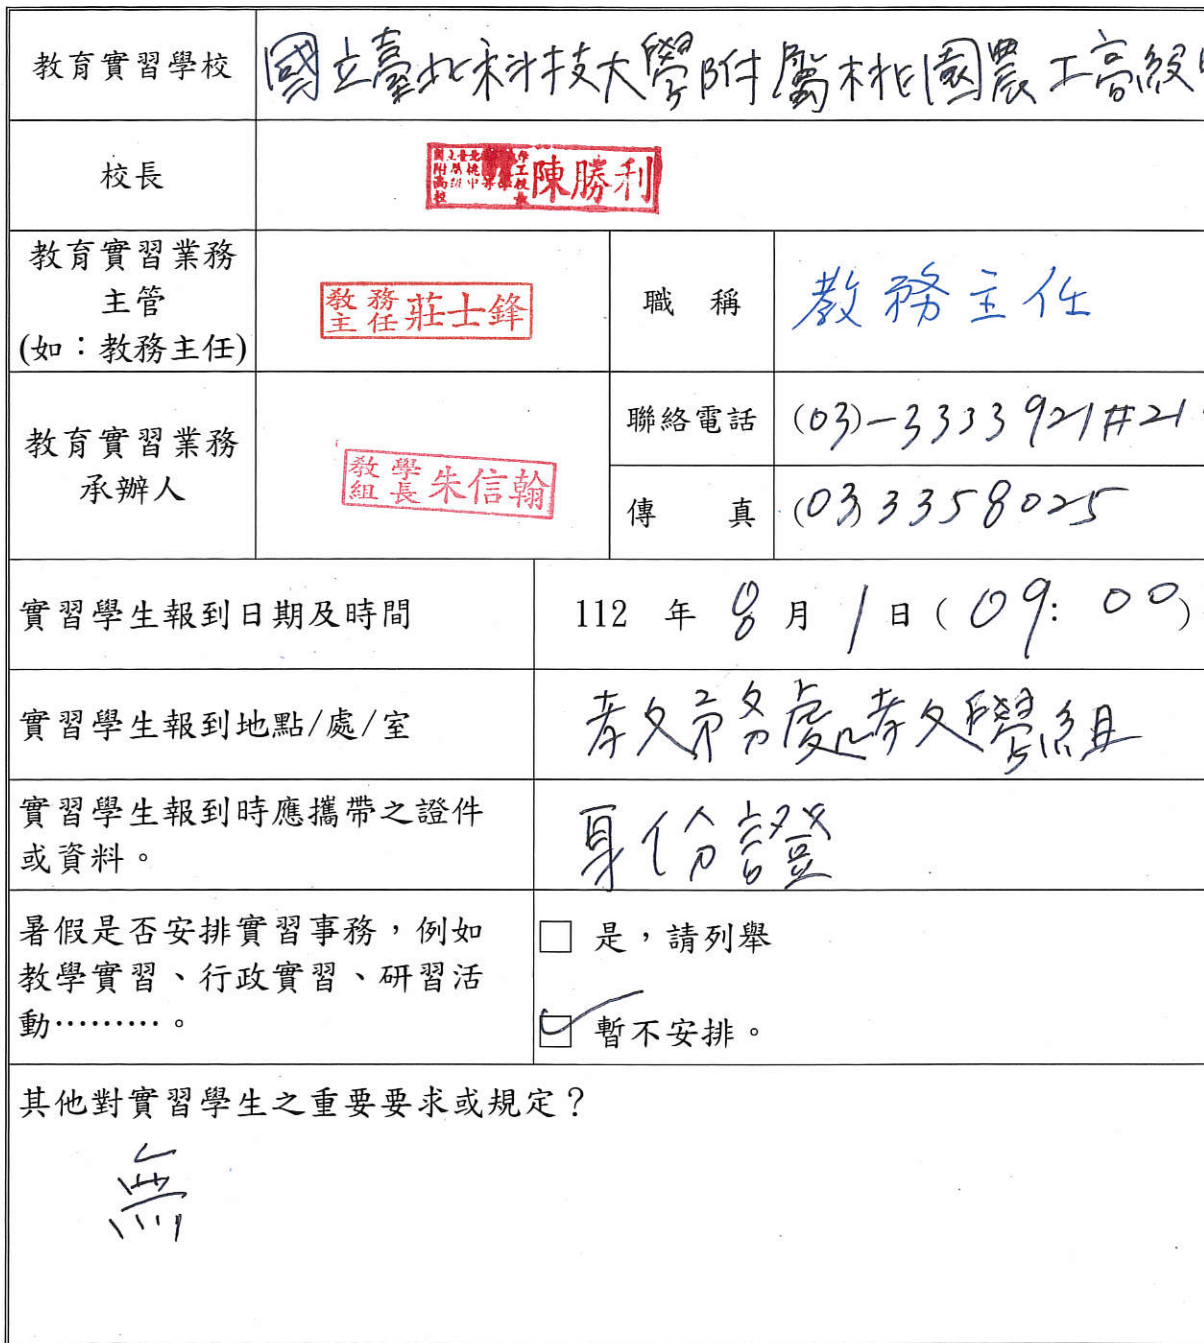 教育實習學校 國立臺北科技大學附屬桃園農工高級
校長 陳勝利
教育實習業務
主管
(如：教務主任)
教務
主任 莊士鋒
職 稱 教務主任
教育實習業務
承辦人
教學
組長 朱信翰
聯絡電話 (03)-3333921#21
傳 真 (03)3358025
實習學生報到日期及時間 112 年 8 月 1 日 (09:00)
實習學生報到地點/處/室 教務處教學組
實習學生報到時應攜帶之證件
或資料。
身份證
暑假是否安排實習事務，例如
教學實習、行政實習、研習活
動………。
□ 是，請列舉
☑ 暫不安排。
其他對實習學生之重要要求或規定？
無